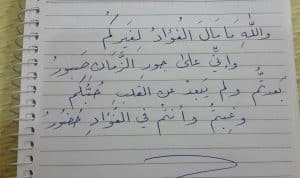 واللهِ مَا مَالَ الفُؤادُ لِغَيرِكُم
وإنّي على جورِ الزَّمان صَبورُ
بَعدتُّم ولم يَبعد عن القلبِ حُبُّكم
وغِبتُم وأنتُم في الفُؤادِ حُضُورُ